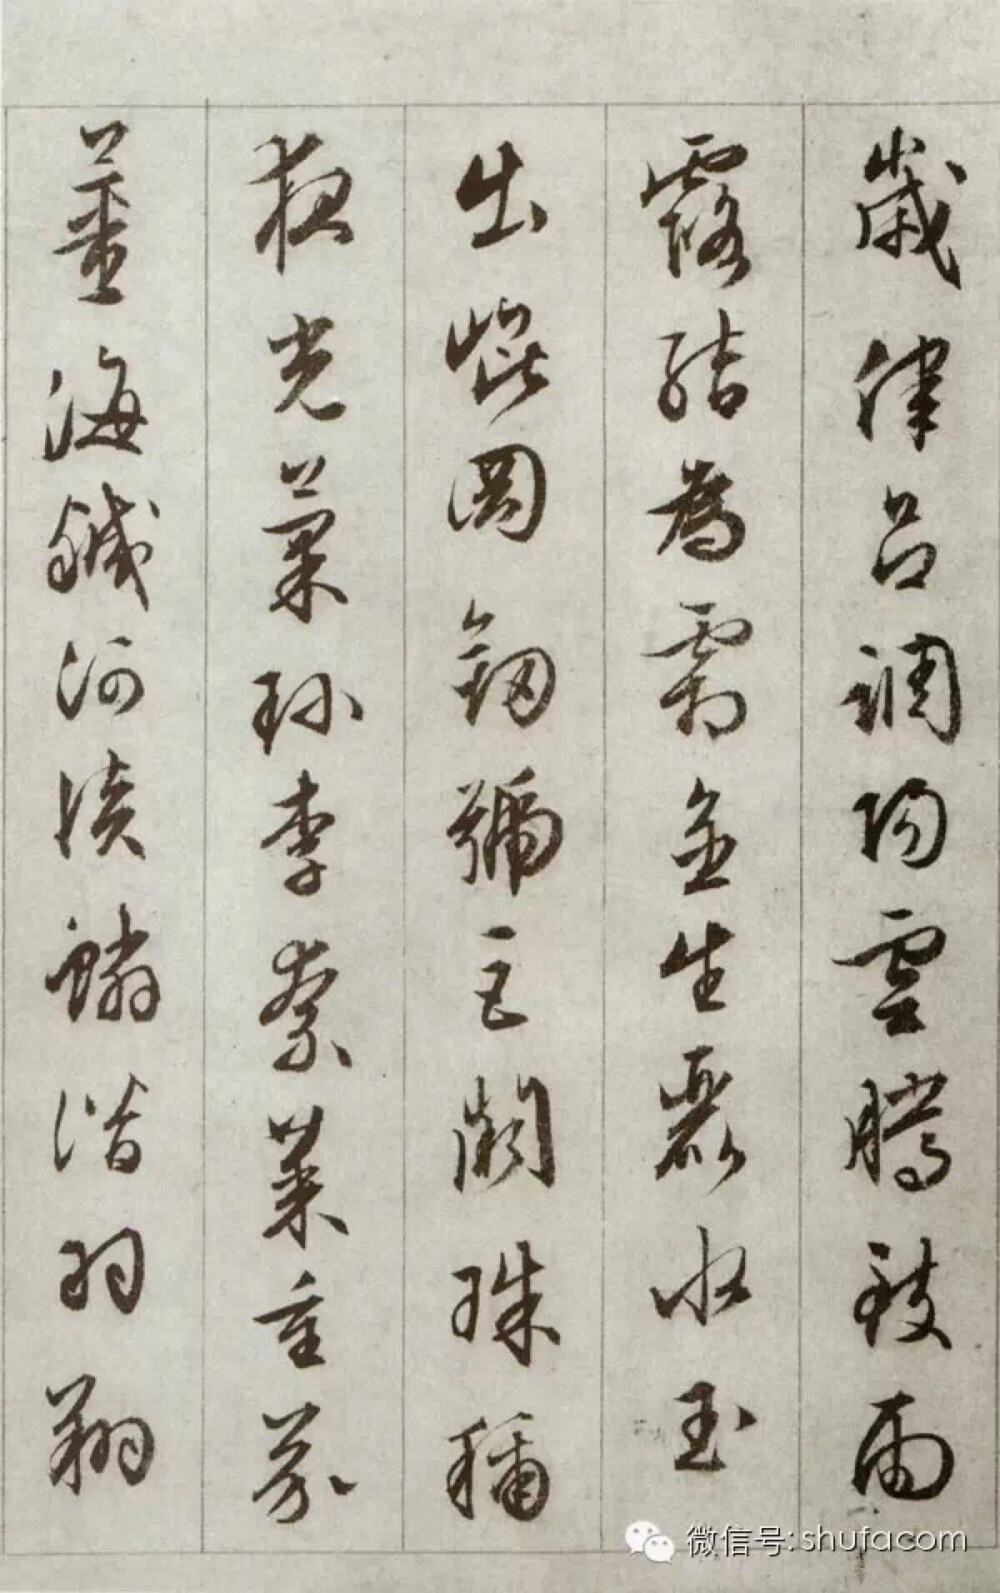 歲律呂調陽雲騰致雨
露結為霜金生麗水玉
出崑岡劒號巨闕珠稱
夜光菓珍李柰菜重芥
薑海鹹河淡鱗潛羽翔
微信号:shufacom